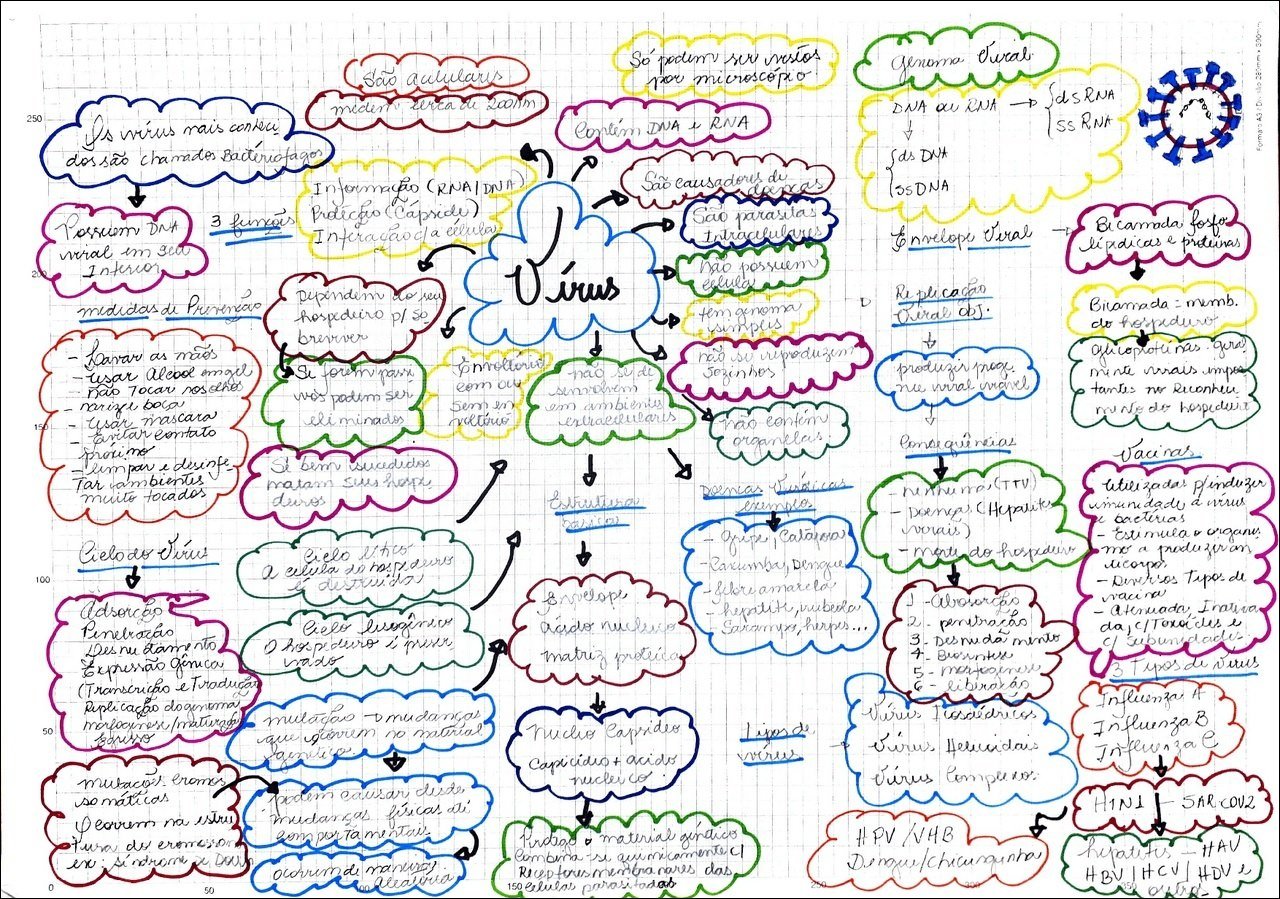 São acelulares
medem cerca de 200nm
Só podem ser vistos
por microscópio
Contém DNA e RNA
Genoma Viral
DNA ou RNA → {dsRNA
ssRNA
{dsDNA
ssDNA
Os vírus mais conheci
dos são chamados Bacteriófagos
Possuem DNA
viral em seu
Interior
3 funções
Informação (RNA/DNA)
Proteção (Cápside)
Infecção c/a célula
Vírus
São causadores de
doenças
São parasitas
Intracelulares
não possuem
célula
tem genoma
simples
não se reproduzem
sozinhos
não contém
organelas
Envelope Viral
Bicamada fosfo
lipídicas e proteínas
Bicamada = memb.
do hospedeiro
glicoproteínas gera
mente virais impor
tantes no Reconheci
mento do hospedeiro
Replicação
Viral obj.
produzir proge
nie viral viável
Consequências
- nenhuma (TTV)
- doenças (Hepatites
virais)
- morte do hospedeiro
1 - Absorção
2 - penetração
3 - Desnudamento
4 - Biosíntese
5 - morfogênese
6 - liberação
Vacinas
Utilizadas p/induzir
imunidade a vírus
e bactérias
- Estimula o organis
mo a produzir an
ticorpos
- Diversos Tipos de
vacina
- Atenuada, Inativa
da, c/ Toxóides e
c/ Subunidades
3 Tipos de Vírus
Influenza A
Influenza B
Influenza C
H1N1 - SARCOV2
hepatites - HAV
HBV/HCV/HDV e
outros
HPV/VHB
Dengue/chicungunha
Tipos de
vírus
Vírus Icosaédricos
Vírus Helicoidais
Vírus Complexos
medidas de Prevenção
- Lavar as mãos
- usar Alcool em gel
- não Tocar nos olhos
nariz e boca
- usar máscara
- Evitar contato
próximo
- limpar e desinfe
Tar ambientes
muito tocados
dependem do seu
hospedeiro p/ so
breviver
Se forem passi
vos podem ser
eliminados
Envoltório
com ou
sem en
voltório
não se de
senvolvem
em ambientes
extracelulares
Se bem sucedidos
matam seus hospe
deiros
Ciclo Lítico
A célula do hospedeiro
é destruída
Ciclo lisogênico
O hospedeiro é preser
vado
Ciclo do Vírus
Adsorção
Penetração
Desnudamento
Expressão Gênica
(Transcrição e Tradução
Replicação do genoma
morfogênese/maturação
Egresso
mutação → mudanças
que ocorrem no material
genético
podem causar desde
mudanças físicas até
comportamentais
ocorrem de maneira
aleatória
mutações cromos
somáticas
Ocorrem na estru
Tura de cromossomos
ex: síndrome de Down
Estrutura
básica
Envelope
ácido nucleico
matriz proteica
Núcleo Capsídeo
Capicídio + ácido
nucleico
Protege o material genético
Combina-se quimicamente c/
Receptores membranares das
Células parasitadas
Doenças Viróticas
exemplos
- Gripe, Catapora
- Caxumba, Dengue
- febre amarela
- hepatite, rubéola
- Sarampo, herpes...